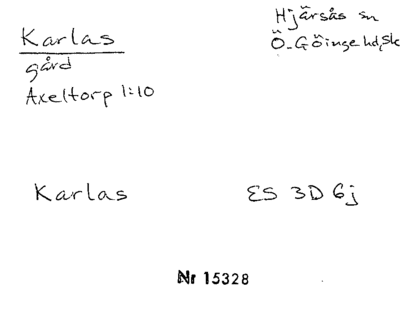 Karlas
gård
Axeltorp 1:10
Hjärsås sn
Ö-Göinge hd, Sk
Karlas
ES 3D 6j
Nr 15328